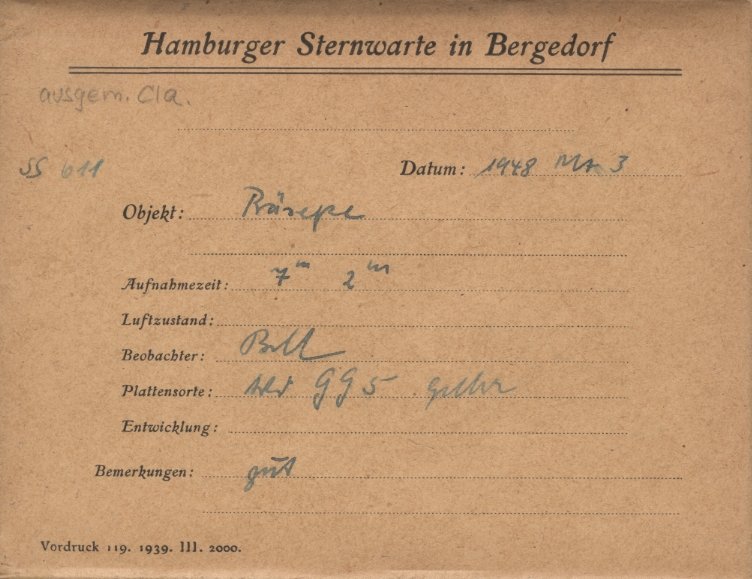 Hamburger Sternwarte in Bergedorf
ausgem. Cla.
SS 611
Datum: 1948 Mrz 3
Objekt: Präsepe
Aufnahmezeit: 7ᵐ 2ᵐ
Luftzustand:
Beobachter:
Plattensorte: GG5
Entwicklung:
Bemerkungen: gut
Vordruck 119. 1939. III. 2000.